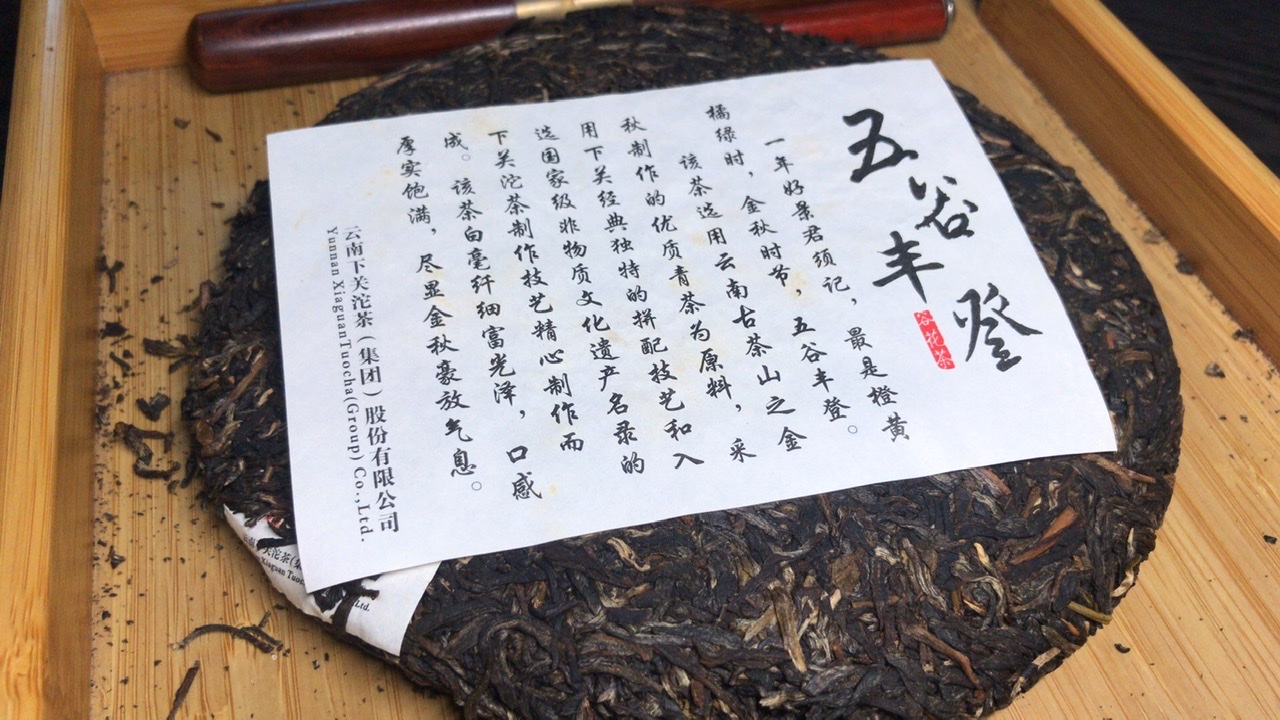 五谷丰登
谷花茶
一年好景君须记，最是橙黄
橘绿时，金秋时节，五谷丰登。
该茶选用云南古茶山之金
秋制作的优质青茶为原料，采
用下关经典独特的拼配技艺和入
选国家级非物质文化遗产名录的
下关沱茶制作技艺精心制作而
成。该茶白毫纤细富光泽，口感
厚实饱满，尽显金秋豪放气息。
云南下关沱茶（集团）股份有限公司
Yunnan XiaguanTuocha(Group) Co.,Ltd.
关沱茶(集
Xiaguan Tuoc
Ltd.